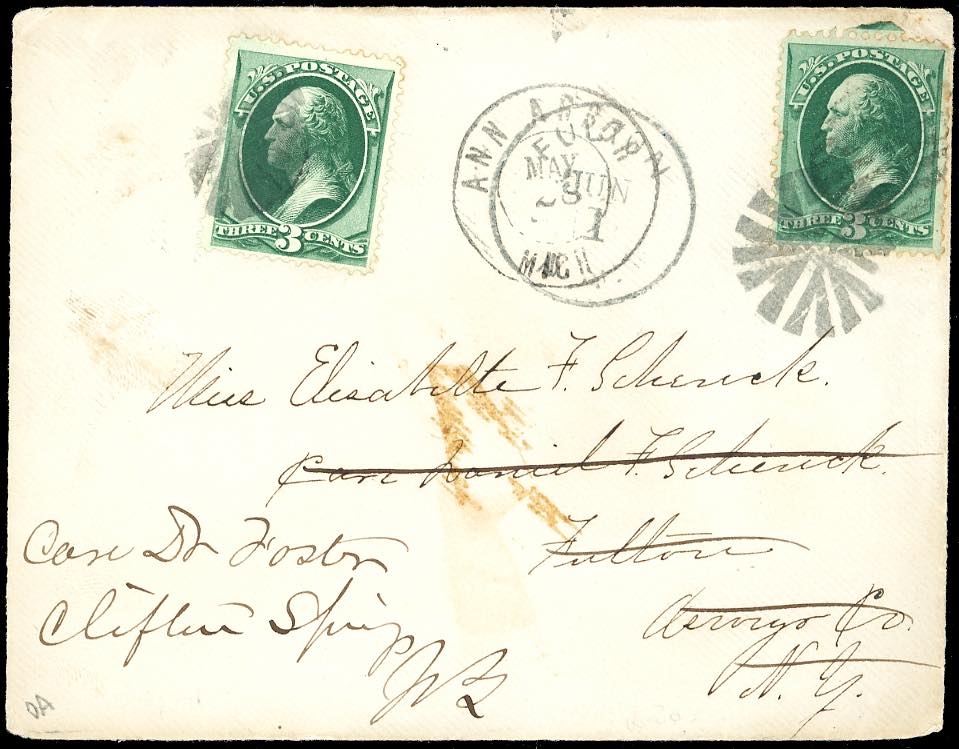 U.S. POSTAGE
THREE 3 CENTS
U.S. POSTAGE
THREE 3 CENTS
ANN ARBOR
MICH
MAY
28
FUL
JUN
1
Miss Elisabette F. Schenck.
Care Daniel F. Schenck.
Fulton
Oswego Co.
N. Y.
Care Dr Foster
Clifton Springs
NY
DA